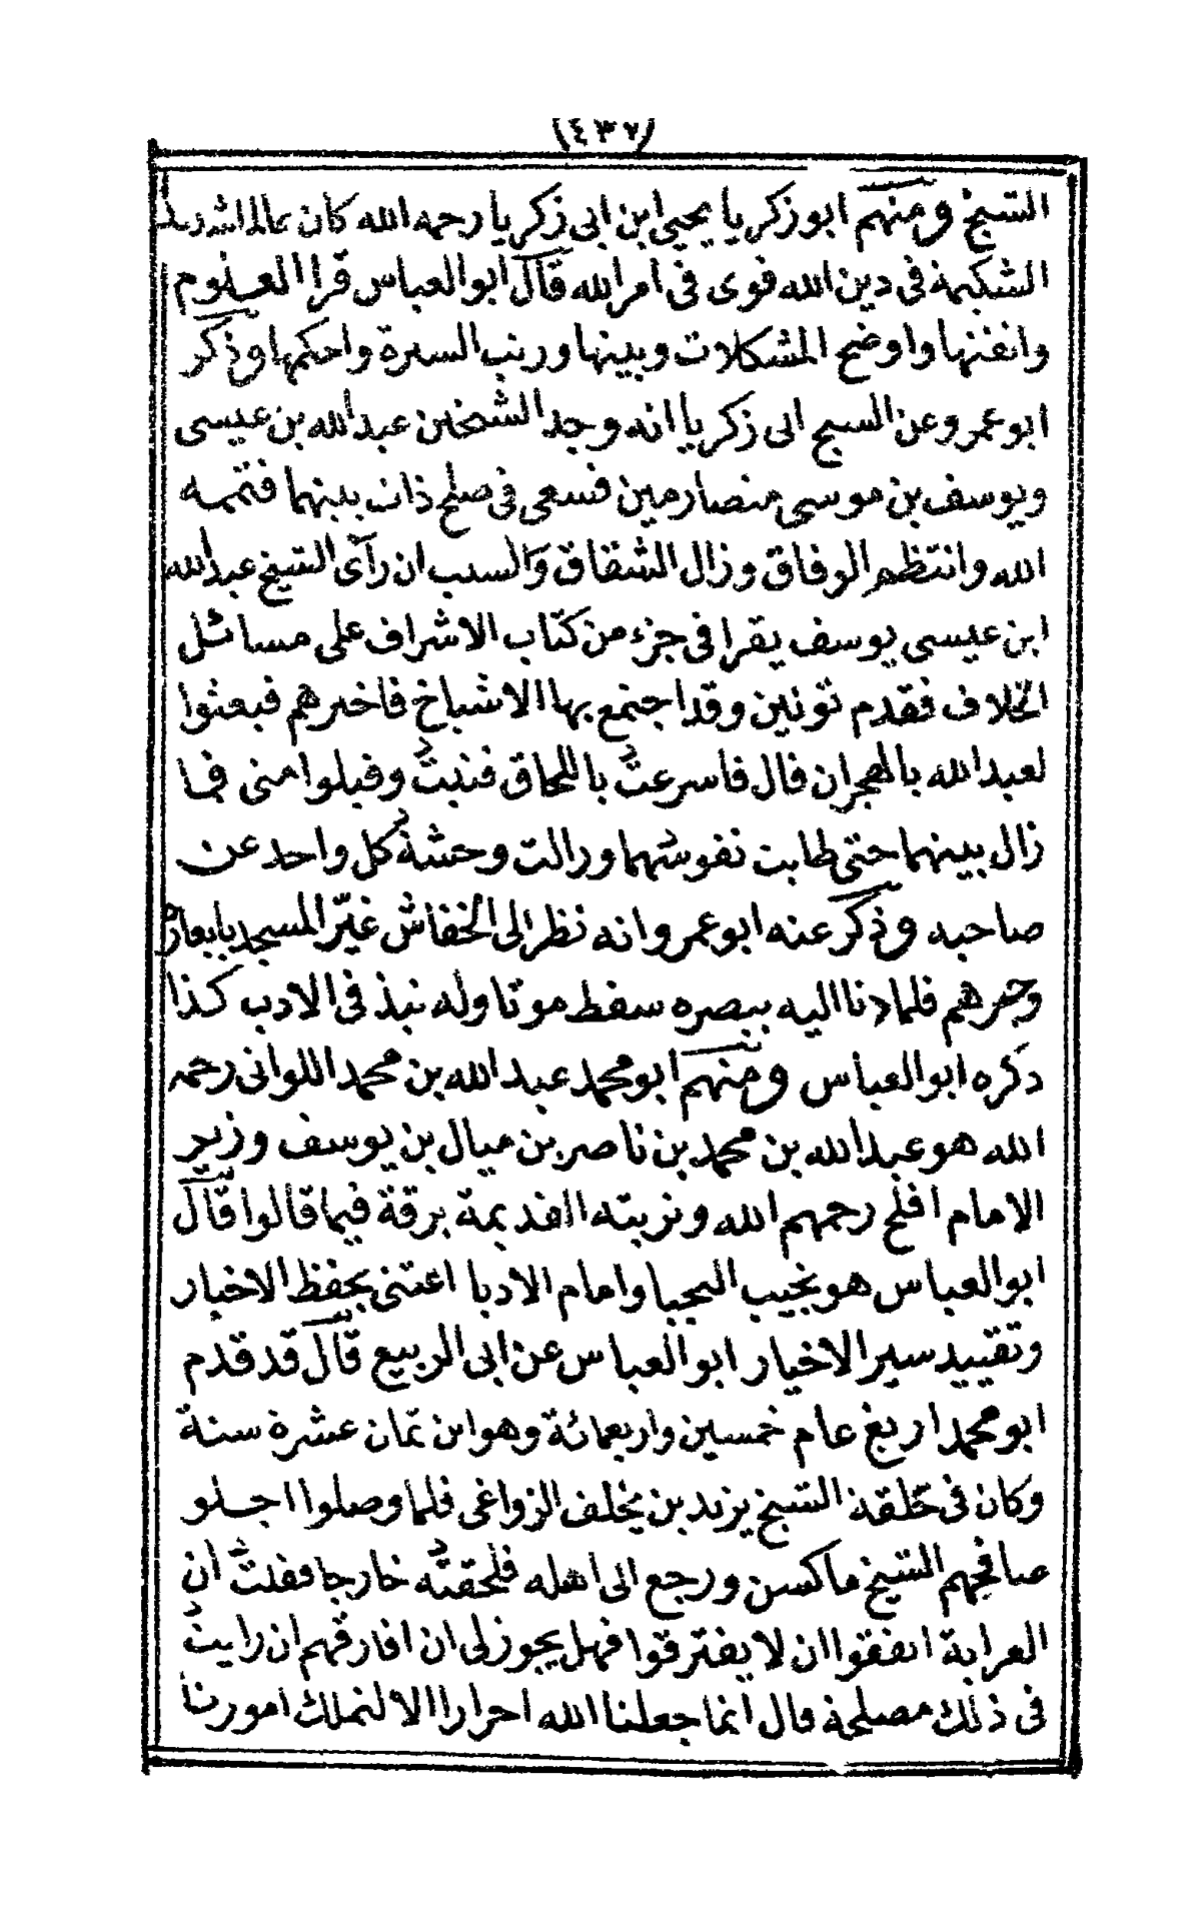 (٤٣٧)
الشيخ ومنهم ابو زكريا يحيى ابن ابى زكريا رحمه الله كان عالما شديد
الشكيمة فى دين الله قوى فى امر الله قال ابو العباس قرا العلوم
واتقنها واوضح المشكلات وبينها ورتب السيرة واحكمها وذكر
ابو عمرو عن الشيخ ابى زكريا انه وجد الشيخين عبد الله بن عيسى
ويوسف بن موسى متصارمين فسعى فى صلح ذات بينهما فتممه
الله وانتظم الوفاق وزال الشقاق والسبب ان رآى الشيخ عبد الله
ابن عيسى يوسف يقرا فى جزء من كتاب الاشراف على مسائل
الخلاف فقدم تونين وقد اجتمع بها الاشياخ فاخبرهم فبعثوا
لعبد الله بالهجران قال فاسرعت باللحاق فتبت وقبلوا منى فما
زال بينهما حتى طابت نفوسهما وزالت وحشة كل واحد عن
صاحبه وذكر عنه ابو عمرو انه نظر الى الخفاش غيّر المسجد بابعارهم
وخبرهم فلما دنا اليه ببصره سقط موتا وله نبذ فى الادب كذا
ذكره ابو العباس ومنهم ابو محمد عبد الله بن محمد اللواتى رحمه
الله هو عبد الله بن محمد بن ناصر بن ميال بن يوسف وزير
الامام افلح رحمهم الله وتربته القديمة برقة فيما قالوا قال
ابو العباس هو نجيب النجبا وامام الادبا اعتنى بحفظ الاخبار
وتقييد سير الاخيار ابو العباس عن ابى الربيع قال قد قدم
ابو محمد اريغ عام خمسين واربعمائة وهو ابن ثمان عشرة سنة
وكان فى حلقة الشيخ يزيد بن يخلف الزواغى فلما وصلوا اجلو
صافحهم الشيخ ماكسن ورجع الى اهله فلحقته خارجا فقلت ان
العزابة اتفقوا ان لا يفترقوا فهل يجوز لى ان افارقهم ان رايت
فى ذلك مصلحة قال انما جعلنا الله احرارا الا لنملك امورنا